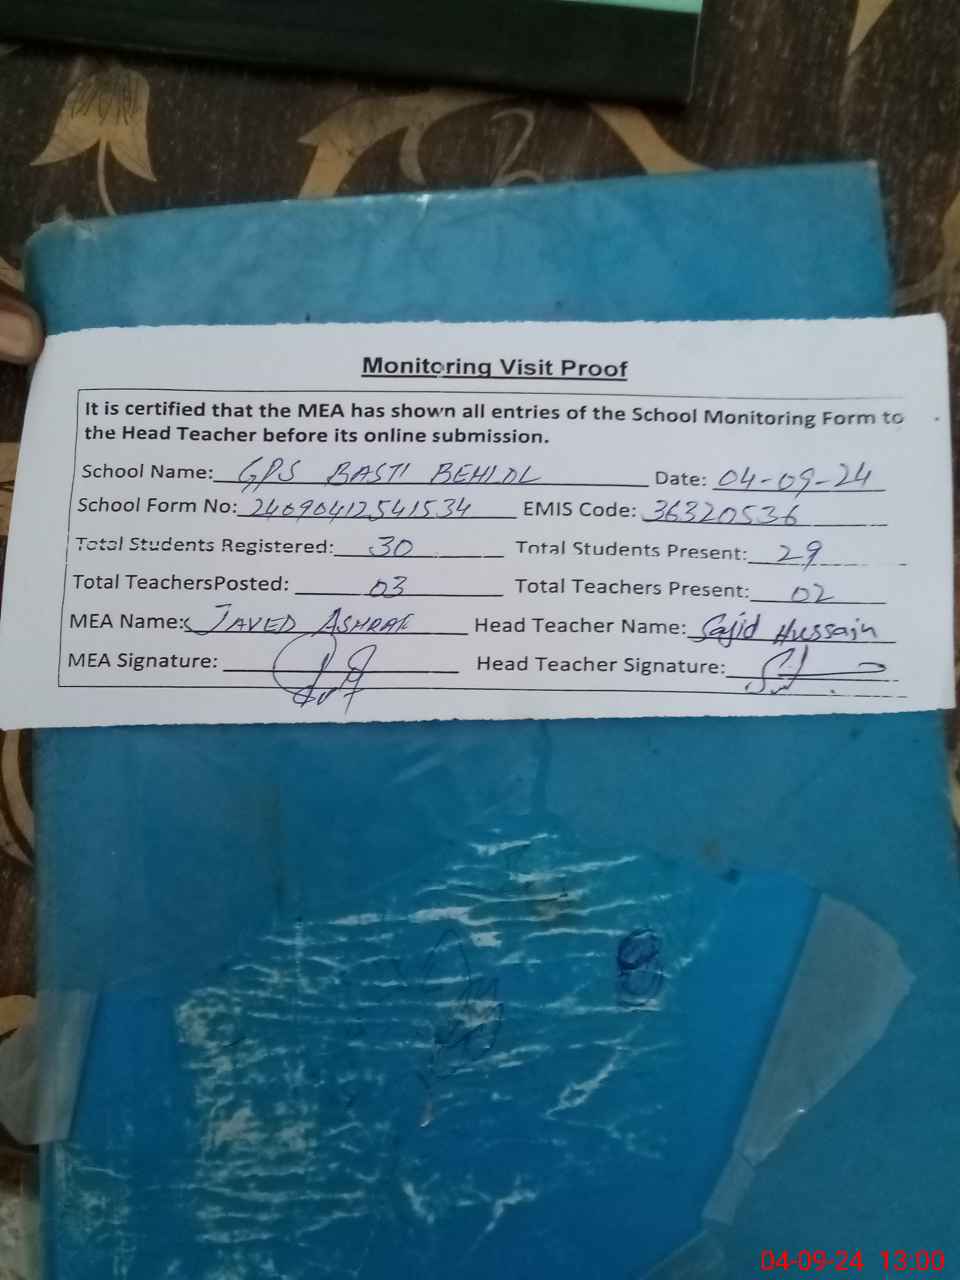 Monitoring Visit Proof
It is certified that the MEA has shown all entries of the School Monitoring Form to
the Head Teacher before its online submission.
School Name: GPS BASTI BEHIDL Date: 04-09-24
School Form No: 24090412541534 EMIS Code: 36320536
Total Students Registered: 30 Total Students Present: 29
Total TeachersPosted: 03 Total Teachers Present: 02
MEA Name: JAVED ASHRAF Head Teacher Name: Sajid Hussain
MEA Signature: Head Teacher Signature:
04-09-24 13:00